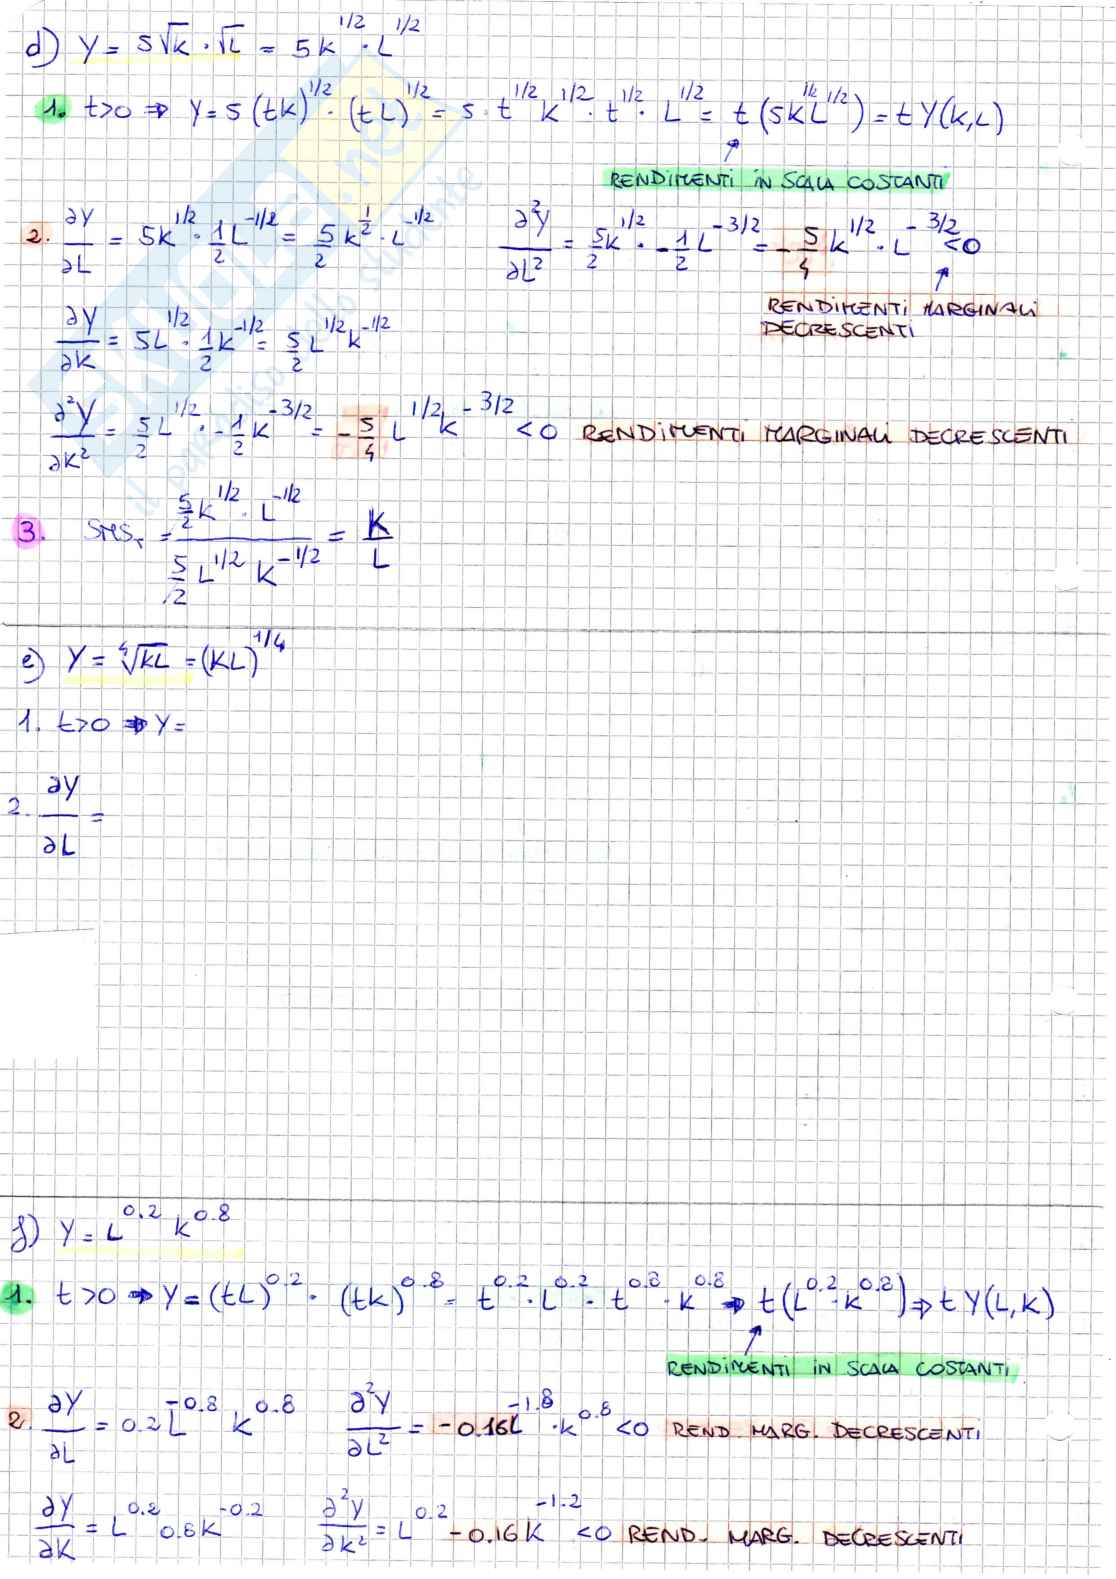 d) Y = 5√K · √L = 5K^1/2 · L^1/2
1. t>0 ⇒ Y = 5(tK)^1/2 · (tL)^1/2 = 5 · t^1/2 K^1/2 · t^1/2 · L^1/2 = t(5K^1/2 L^1/2) = tY(K,L)
RENDIMENTI IN SCALA COSTANTI
2. ∂Y/∂L = 5K^1/2 · 1/2 L^-1/2 = 5/2 K^1/2 · L^-1/2    ∂²Y/∂L² = 5/2 K^1/2 · -1/2 L^-3/2 = -5/4 K^1/2 · L^-3/2 <0
RENDIMENTI MARGINALI
DECRESCENTI
∂Y/∂K = 5L^1/2 · 1/2 K^-1/2 = 5/2 L^1/2 K^-1/2
∂²Y/∂K² = 5/2 L^1/2 · -1/2 K^-3/2 = -5/4 L^1/2 K^-3/2 <0 RENDIMENTI MARGINALI DECRESCENTI
3. SMS_T = (5/2 K^1/2 · L^-1/2)/(5/2 L^1/2 K^-1/2) = K/L
e) Y = ⁴√KL = (KL)^1/4
1. t>0 ⇒ Y =
2. ∂Y/∂L =
f) Y = L^0.2 K^0.8
1. t>0 ⇒ Y = (tL)^0.2 · (tK)^0.8 = t^0.2 · L^0.2 · t^0.8 · K^0.8 ⇒ t(L^0.2 · K^0.8) ⇒ tY(L,K)
RENDIMENTI IN SCALA COSTANTI
2. ∂Y/∂L = 0.2 L^-0.8 K^0.8    ∂²Y/∂L² = -0.16L^-1.8 · K^0.8 <0 REND. MARG. DECRESCENTI
∂Y/∂K = L^0.2 0.8K^-0.2    ∂²Y/∂K² = L^0.2 -0.16K^-1.2 <0 REND. MARG. DECRESCENTI